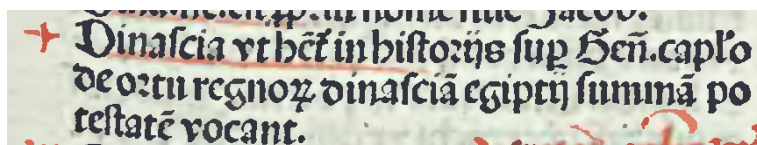 Dinaſcia vt hēt in hiſtorijs ſup̲ Gen̄.capł'o
de ortu regnoꝝ dinaſciā egiptij ſummā po
teſtatē vocant.